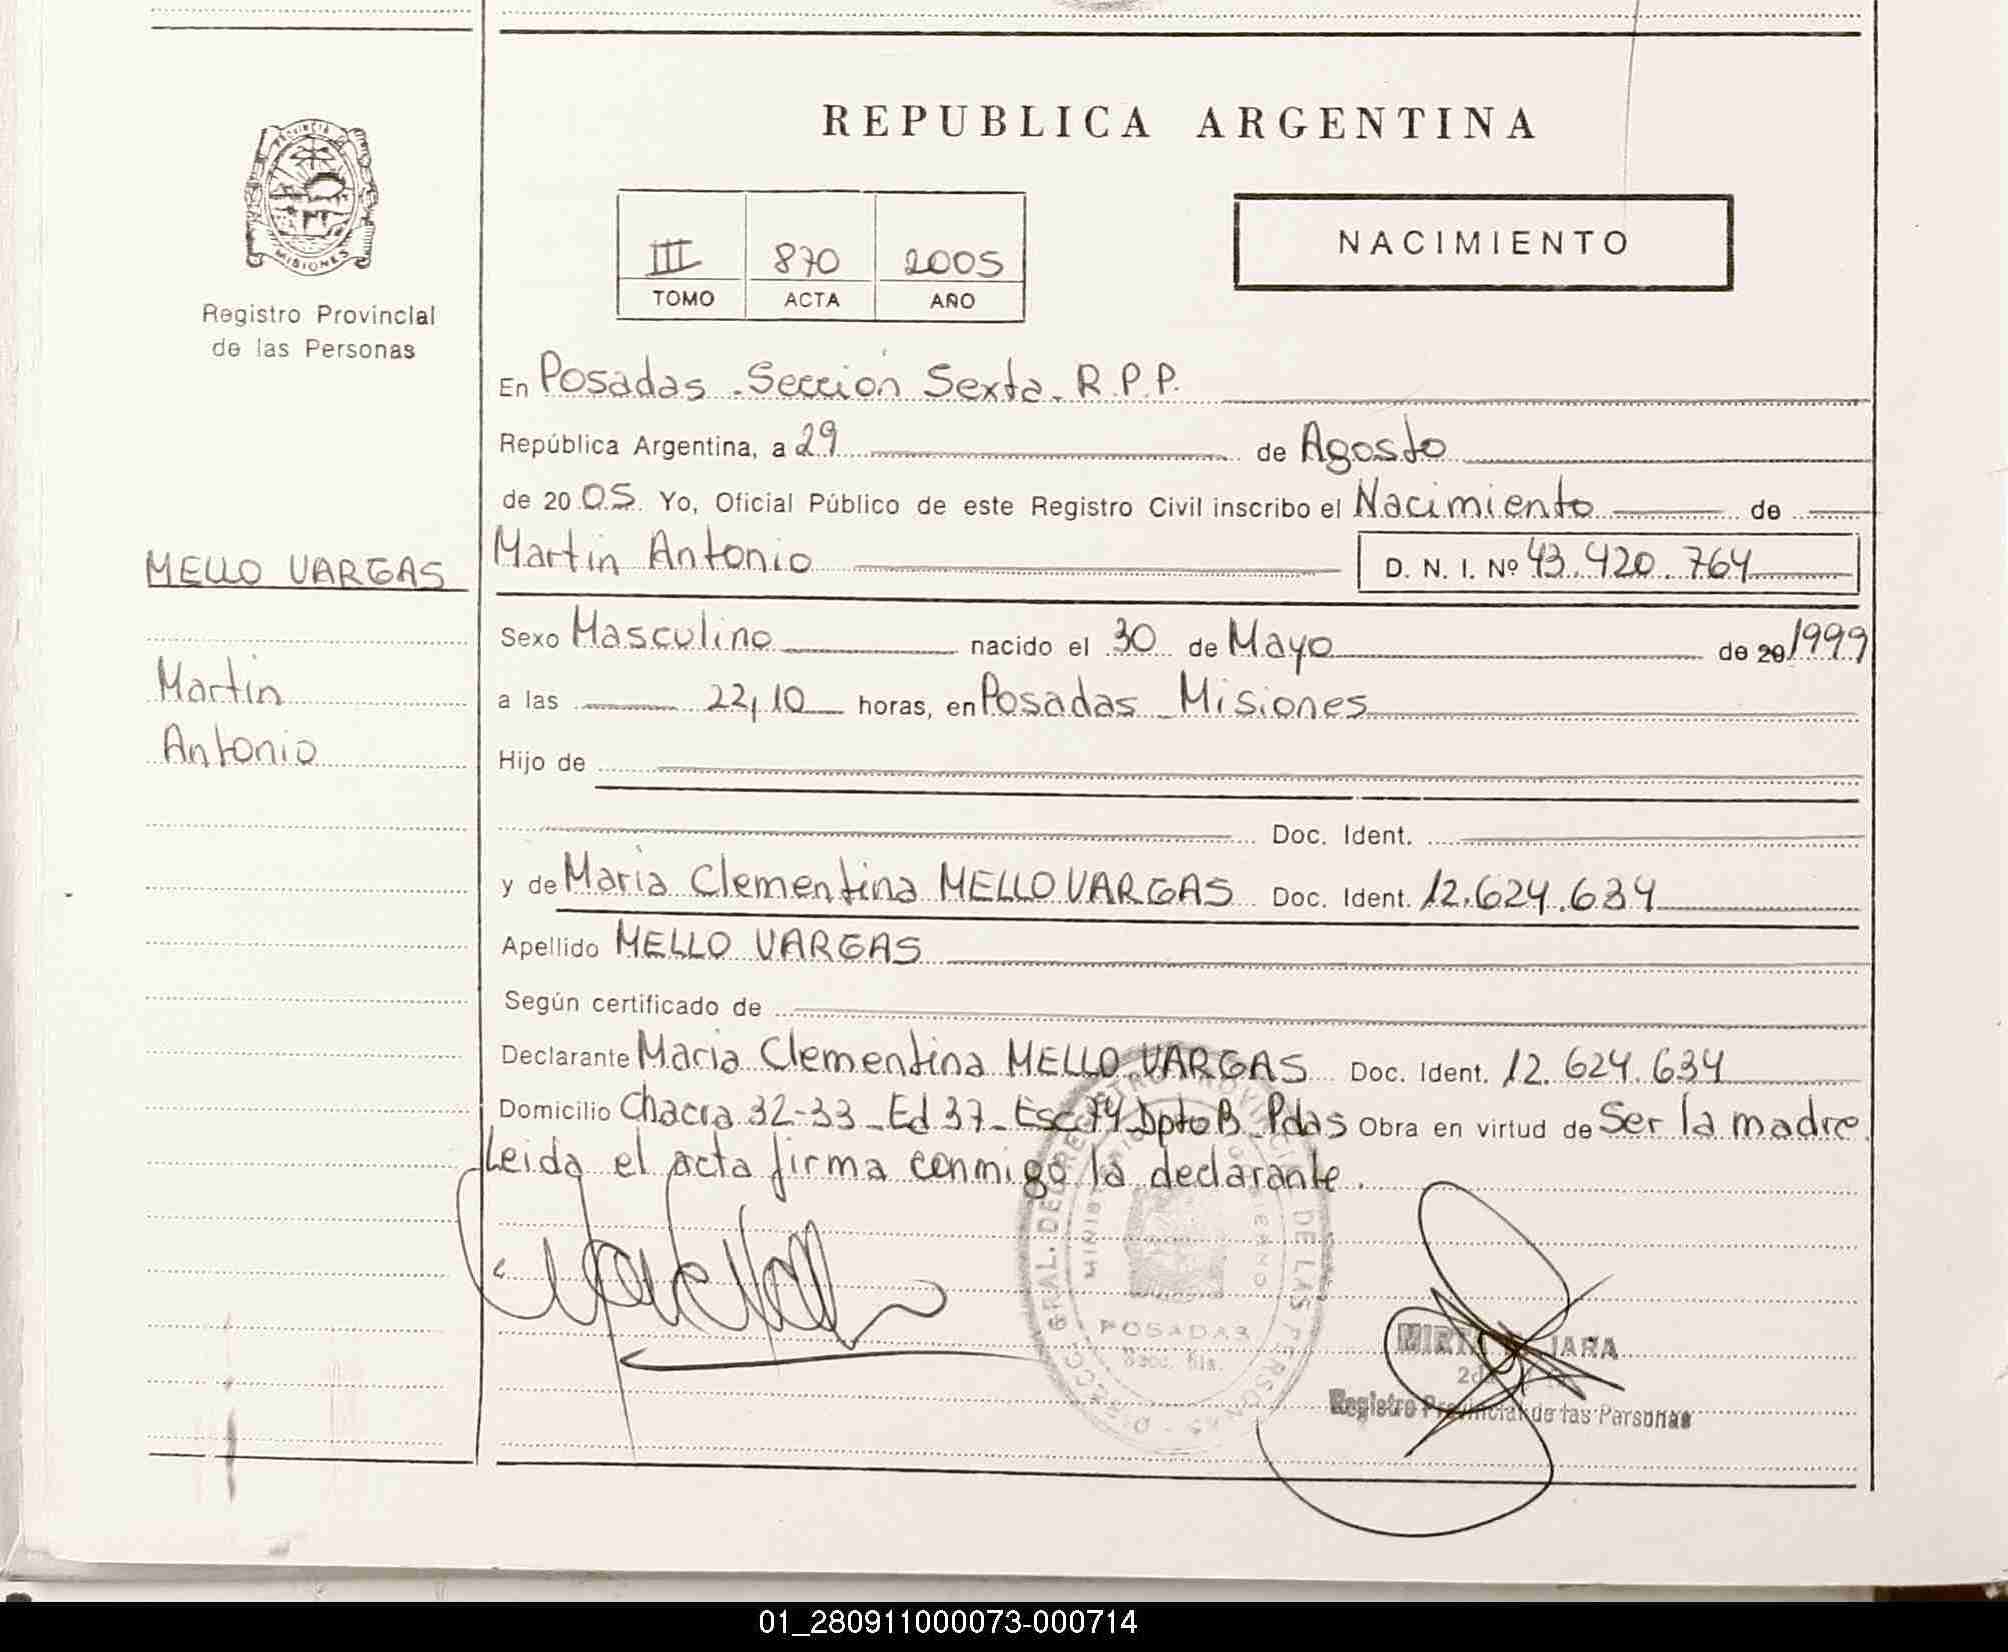 REPUBLICA ARGENTINA
PROVINCIA
MISIONES
Registro Provincial
de las Personas
III 870 2005
TOMO ACTA AÑO
NACIMIENTO
En Posadas - Sección Sexta - R.P.P.
República Argentina, a 29 de Agosto
de 2005. Yo, Oficial Público de este Registro Civil inscribo el Nacimiento de
MELLO VARGAS
Martin
Antonio
Martin Antonio D. N. I. Nº 43.420.764
Sexo Masculino nacido el 30 de Mayo de 20 1999
a las 22,10 horas, en Posadas - Misiones
Hijo de
Doc. Ident.
y de Maria Clementina MELLO VARGAS Doc. Ident. 12.624.634
Apellido MELLO VARGAS
Según certificado de
Declarante Maria Clementina MELLO VARGAS Doc. Ident. 12.624.634
Domicilio Chacra 32-33 - Ed 37 - Esc 74 Dpto B - Pdas Obra en virtud de Ser la madre.
Leida el acta firma conmigo la declarante.
DIRECC. GRAL. DEL REGISTRO PROVINCIAL DE LAS PERSONAS
POSADAS
JARA
Registro Provincial de las Personas
01_280911000073-000714